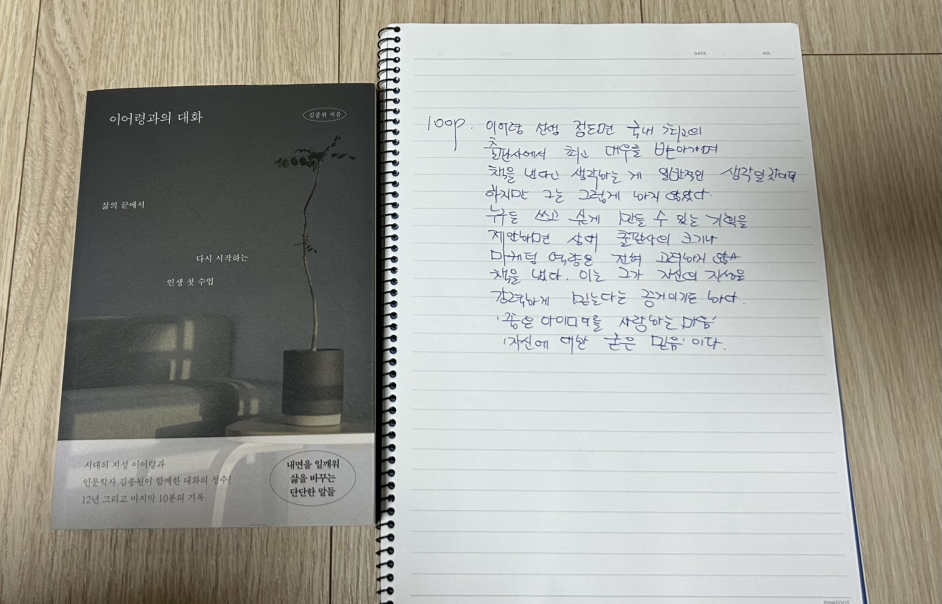 이어령과의 대화
김종원 지음
삶의 끝에서
다시 시작하는
인생 첫 수업
시대의 지성 이어령과
인문학자 김종원이 함께한 대화의 정수!
12년 그리고 마지막 10분의 기록
내면을 일깨워
삶을 바꾸는
단단한 말들
DATE.
NO.
100p. 이어령 선생 정도면 국내 최고의
출판사에서 최고 대우를 받아가며
책을 낸다고 생각하는 게 일반적인 생각일 것이다
하지만 그는 그렇게 하지 않았다.
누구든 쓰고 싶게 만들 수 있는 기획을
제안하면 상대 출판사의 크기나
마케팅 역량은 전혀 고려하지 않고
책을 냈다. 이는 그가 자신의 지성을
강력하게 믿는다는 증거이기도 하다.
'좋은 아이디어를 사랑하는 마음'
'자신에 대한 굳은 믿음' 이다.